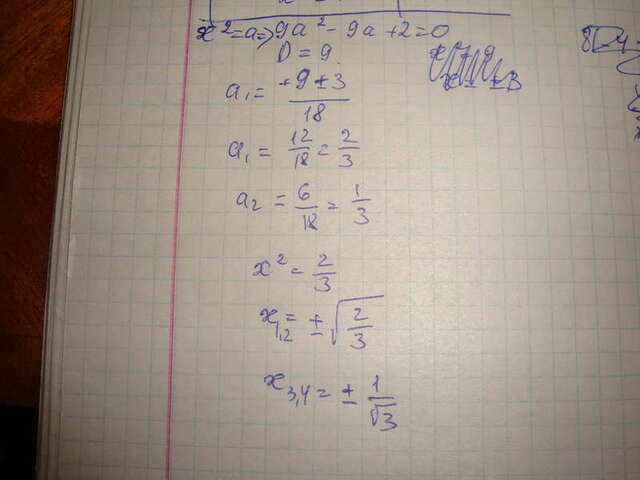 x²=a=>9a²-9a+2=0
D=9
a₁= +9±3/18
a₁= 12/18=2/3
a₂=6/18=1/3
x²=2/3
x₁,₂=±√2/3
x₃,₄=±1/√3